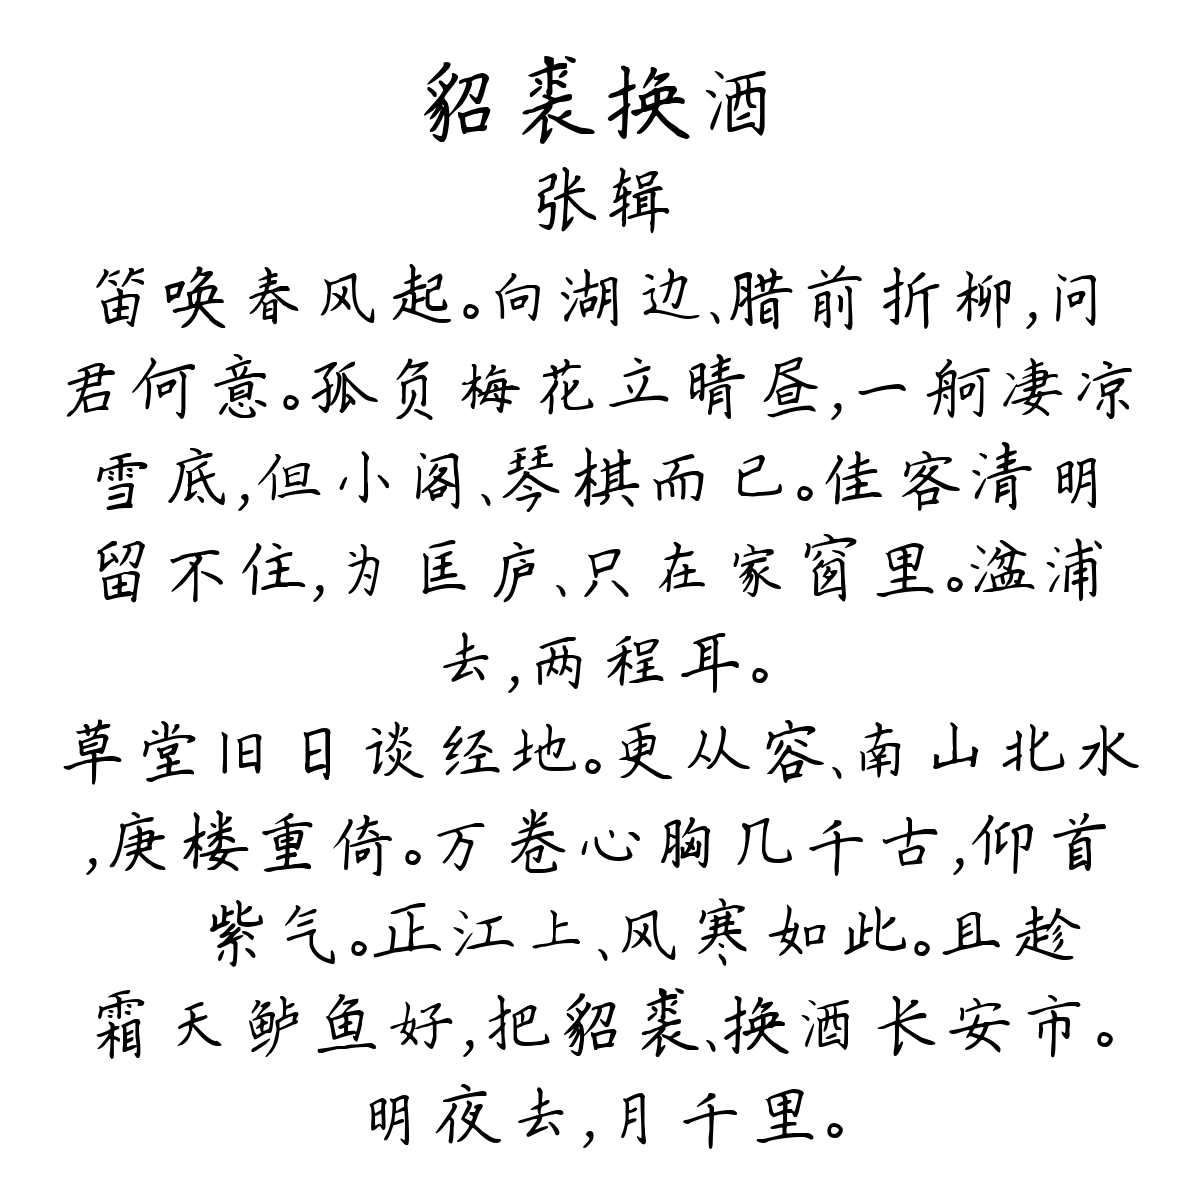 貂裘换酒
张辑
笛唤春风起。向湖边、腊前折柳,问
君何意。孤负梅花立晴昼,一舸凄凉
雪底,但小阁、琴棋而已。佳客清明
留不住,为匡庐、只在家窗里。湓浦
去,两程耳。
草堂旧日谈经地。更从容、南山北水
,庚楼重倚。万卷心胸几千古,仰首
紫气。正江上、风寒如此。且趁
霜天鲈鱼好,把貂裘、换酒长安市。
明夜去,月千里。